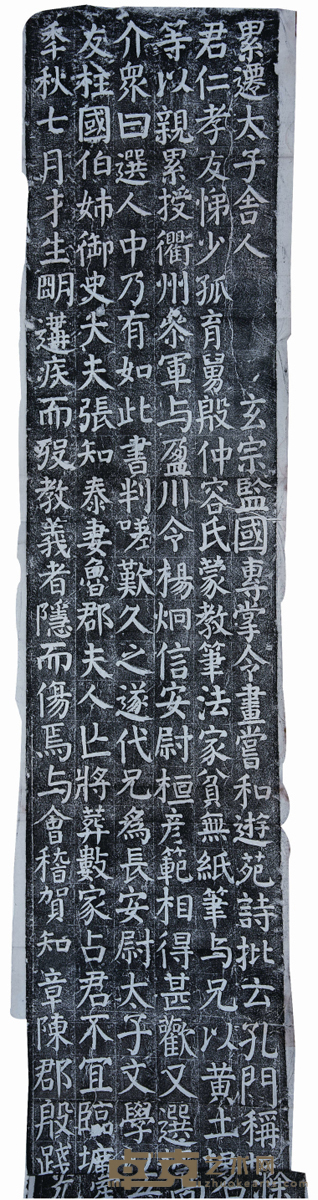 累遷太子舍人　玄宗監國專掌令畫嘗和遊苑詩批云孔門稱
君仁孝友悌少孤育舅殷仲容氏蒙教筆法家貧無紙筆与兄以黃土
等以親累授衢州參軍与盈川令楊炯信安尉桓彥範相得甚歡又選
介眾曰選人中乃有如此書判嗟歎久之遂代兄爲長安尉太子文學
友柱國伯姉御史大夫張知泰妻魯郡夫人亡將葬數家占君不宜臨壙
秊秋七月才生朙遘疾而歿教義者隱而傷焉与會稽賀知章陳郡殷踐